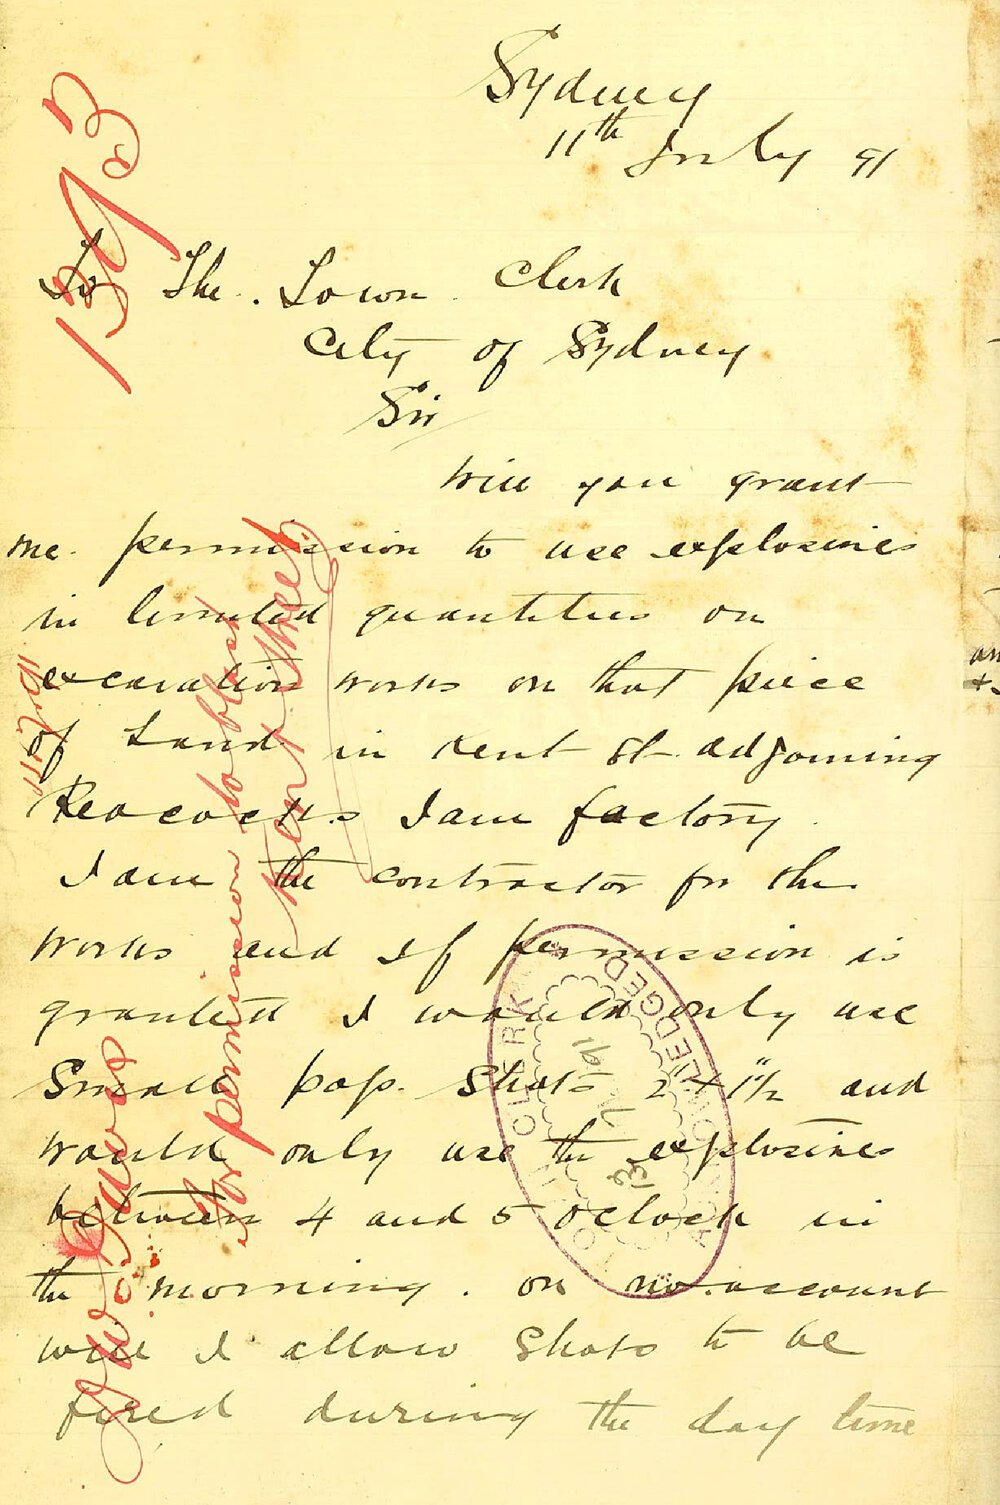 Sydney
11th July 91
To The Town Clerk
City of Sydney
Sir
Will you grant
me permission to use explosives
in limited quantities on
excavation works on that piece
of Land in Kent St Adjoining
Peacocks Jam factory
I am the contractor for the
works and If permission is
granted I would only use
Small pop Shots 2" + 1½" and
would only use the explosives
between 4 and 5 oclock in
the morning. on no account
will I allow Shots to be
fired during the day time
for permission to blast
Kent Street
CLERK
ACKNOWLEDGED